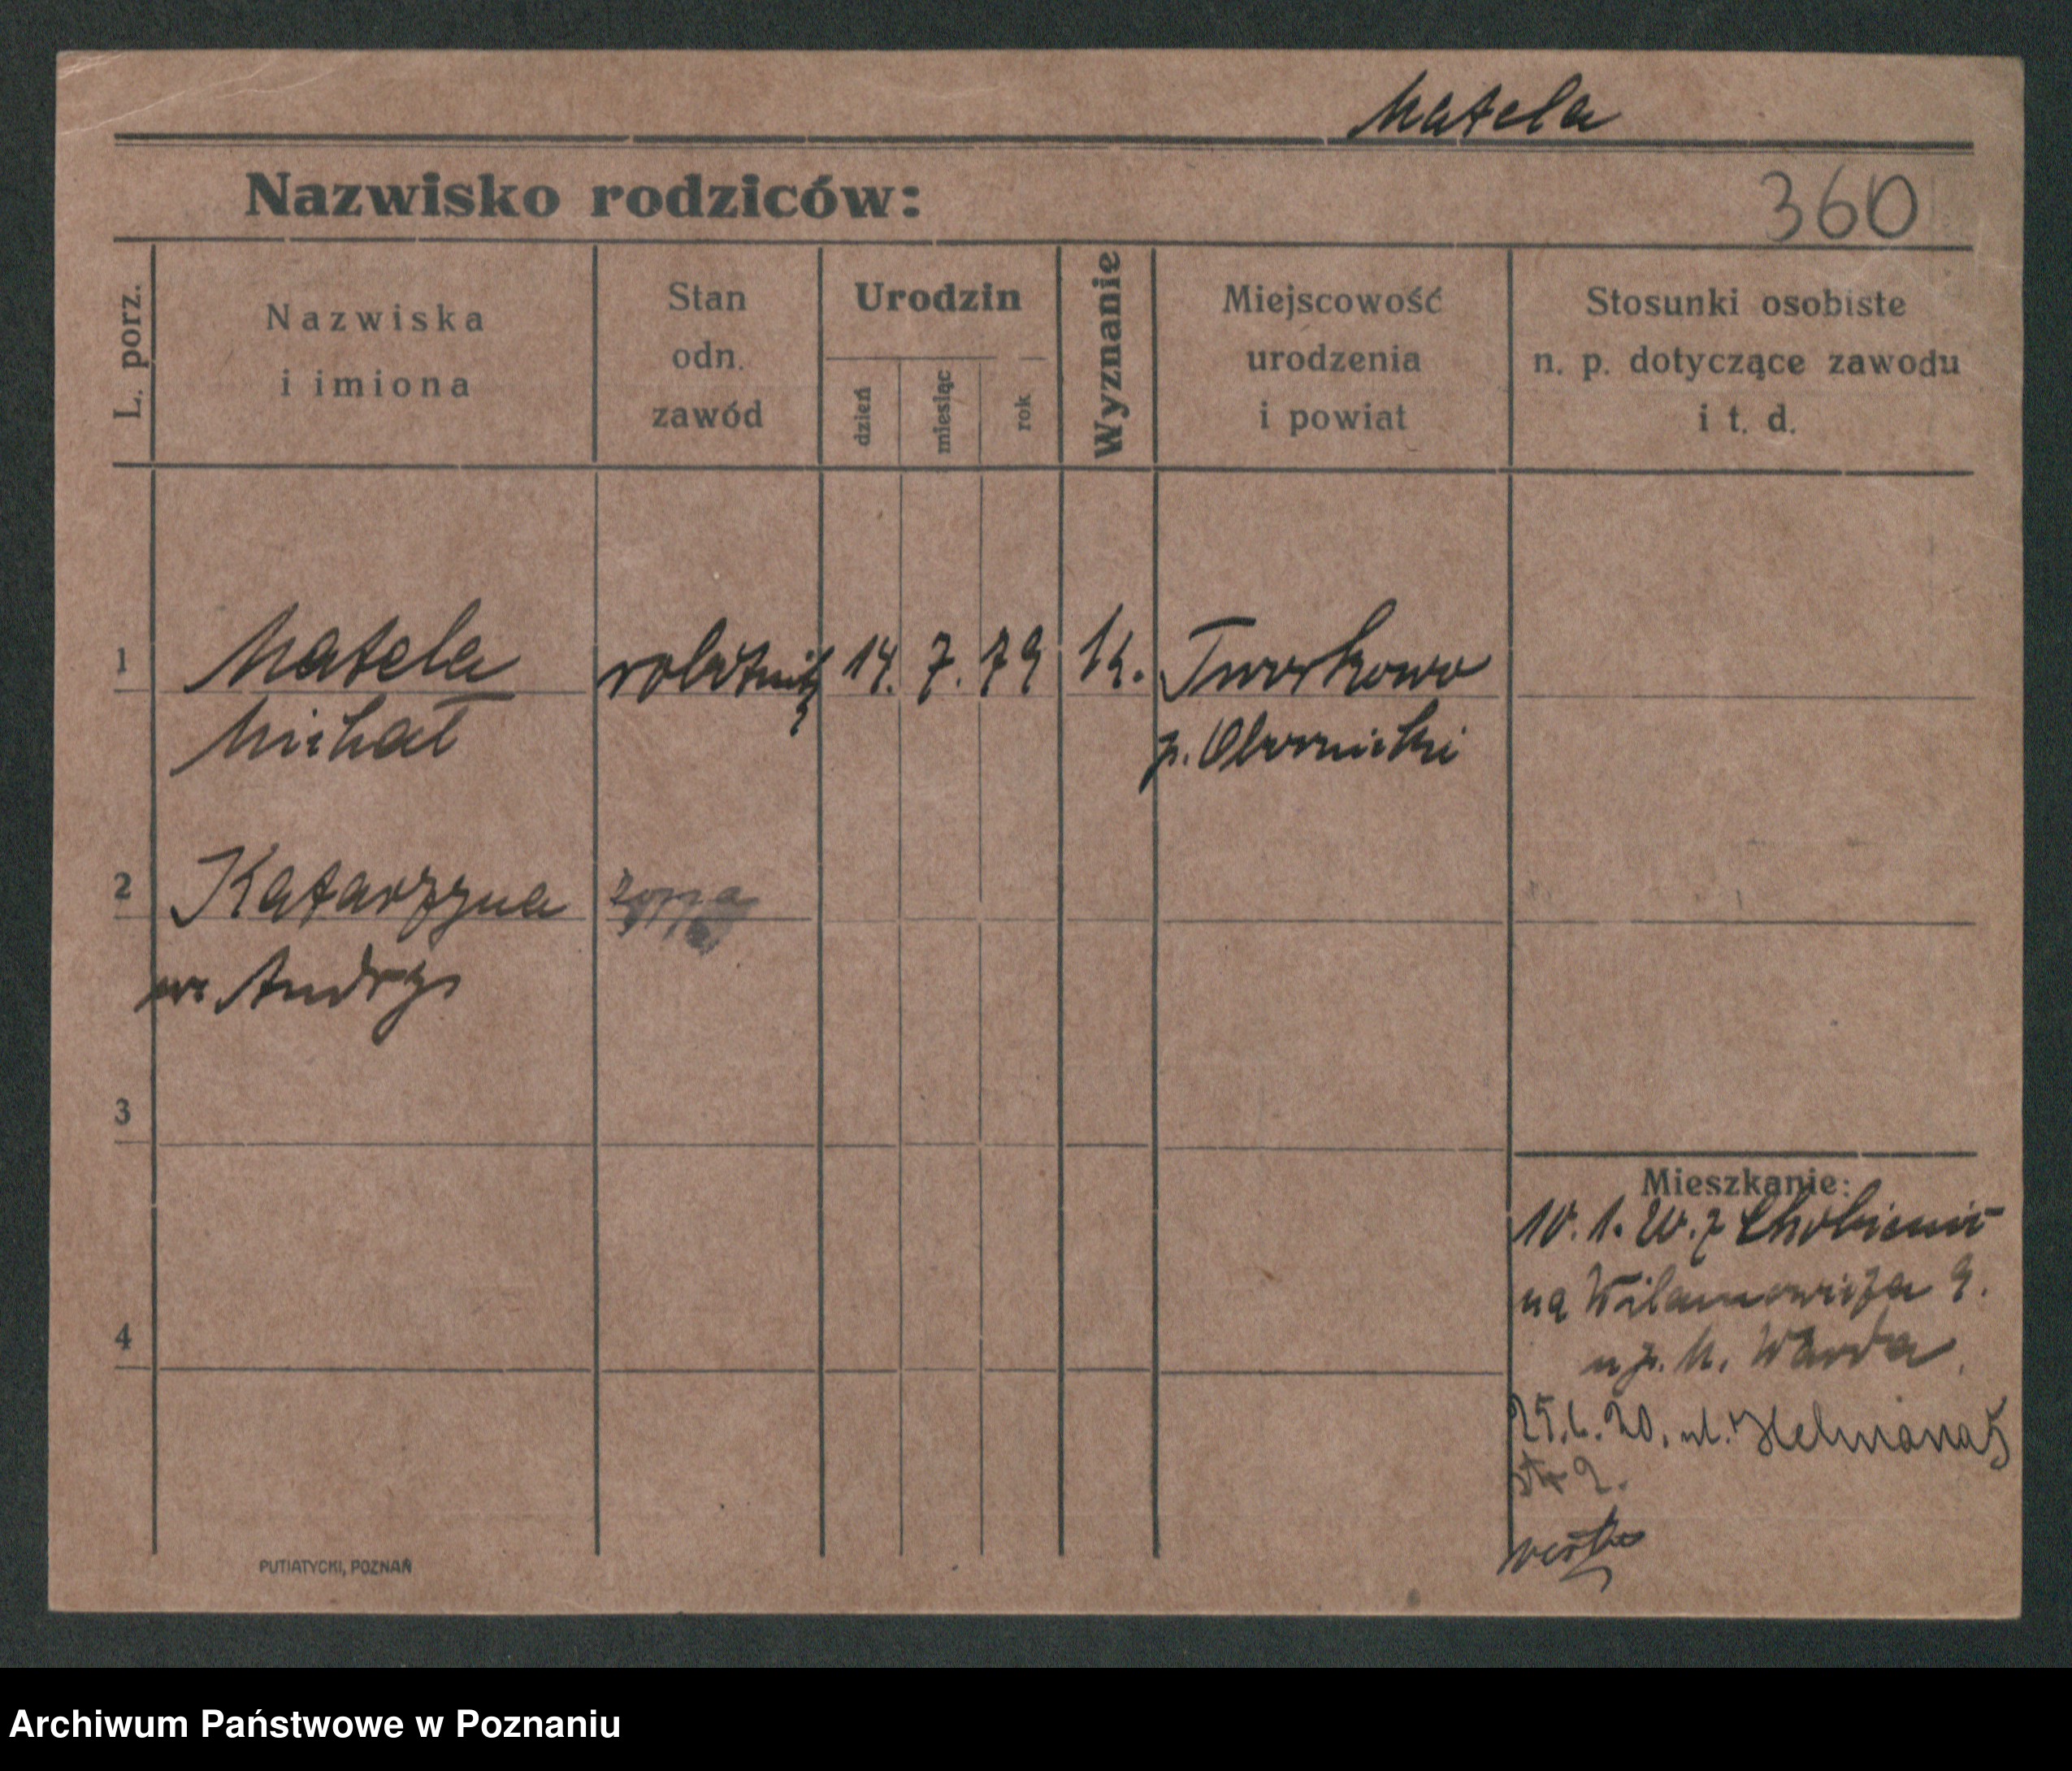 Matela
Nazwisko rodziców:
360
L. porz.
Nazwiska
i imiona
Stan
odn.
zawód
Urodzin
dzień
miesiąc
rok
Wyznanie
Miejscowość
urodzenia
i powiat
Stosunki osobiste
n. p. dotyczące zawodu
i t. d.
1
Matela robotnik 14. 7. 79 k. Tworkowo
Michał p. Obornicki
2
Katarzyna żona
Andrzy
3
4
Mieszkanie:
10. 1. 20. z Chobienic
na Wilamowicza 9.
u p. M.
25.6.20. ul.
str 2.
PUTIATYCKI, POZNAŃ
Archiwum Państwowe w Poznaniu